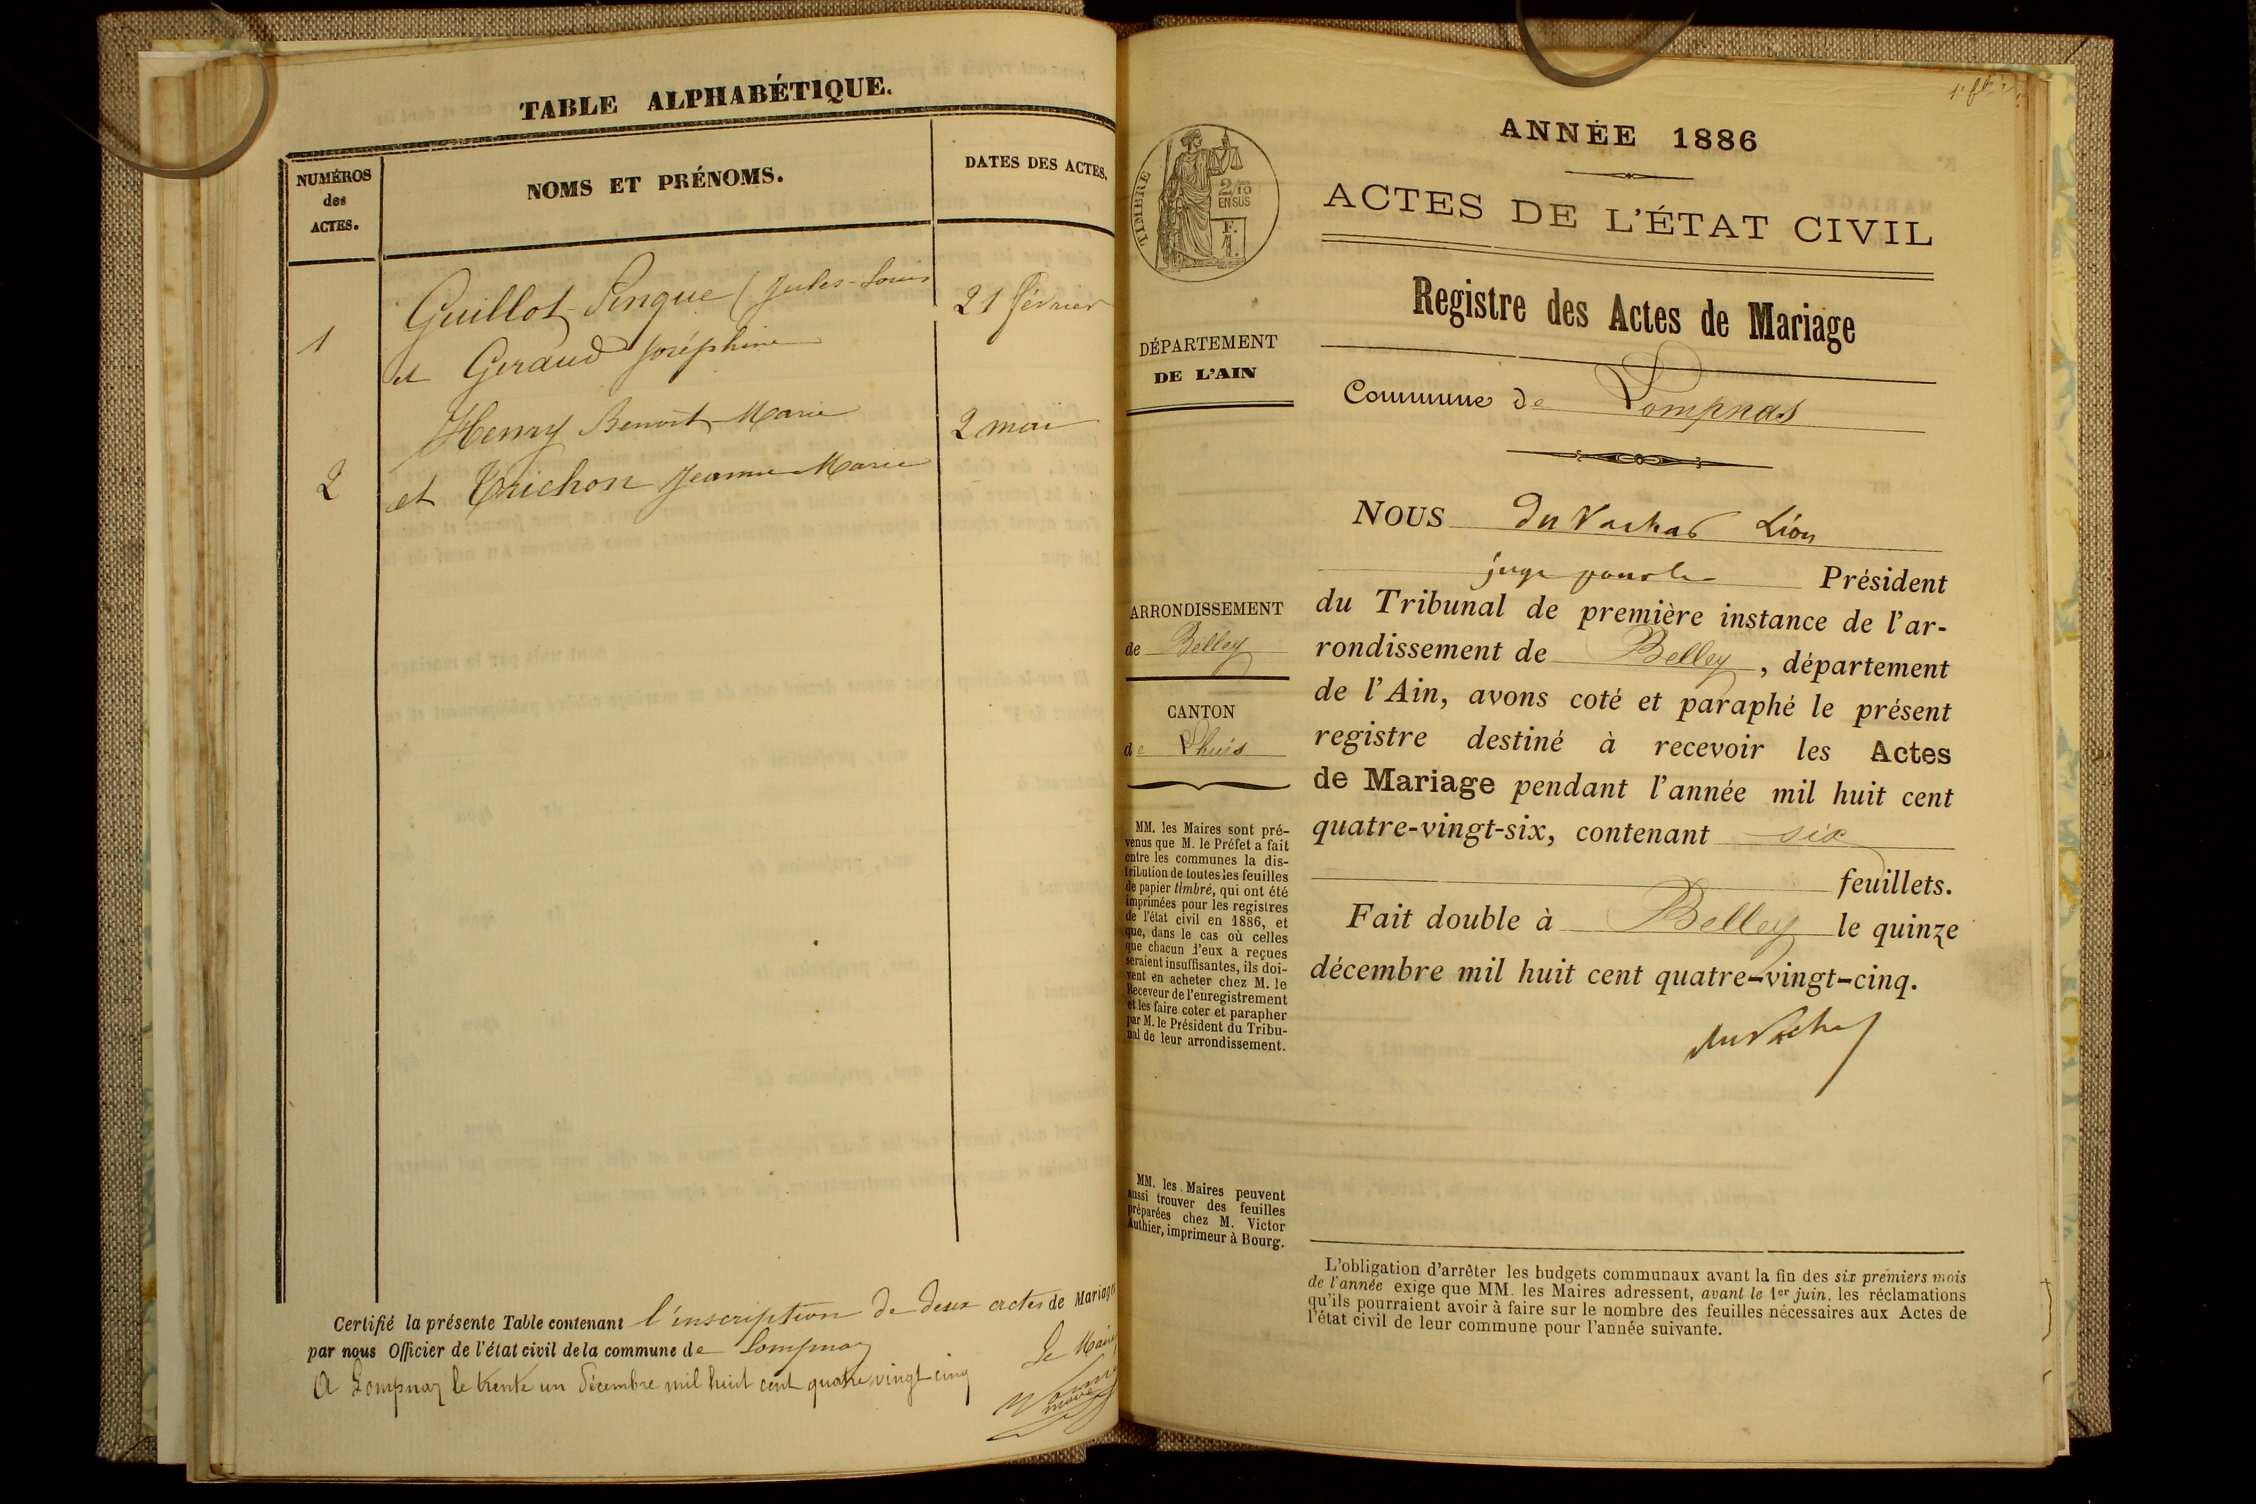 TABLE ALPHABÉTIQUE.
NUMÉROS
des
ACTES.
NOMS ET PRÉNOMS.
DATES DES ACTES.
Guillot Pingue (Jules-Louis
21 février
1
et Geraud Joséphine
Henry Benoît-Marie
2 mai
2
et Trichon Jeanne Marie
Certifié la présente Table contenant l'inscription de deux actes de Mariage
par nous Officier de l'état civil de la commune de Lompnaz
Le Maire
A Lompnaz le trente un Décembre mil huit cent quatre vingt cinq
TIMBRE
2/10
EN SUS
F.
1.
DÉPARTEMENT
DE L'AIN
ARRONDISSEMENT
de Belley
CANTON
de Lhuis
MM. les Maires sont pré-
venus que M. le Préfet a fait
entre les communes la dis-
tribution de toutes les feuilles
de papier timbré, qui ont été
imprimées pour les registres
de l'état civil en 1886, et
que, dans le cas où celles
que chacun d'eux a reçues
seraient insuffisantes, ils doi-
vent en acheter chez M. le
Receveur de l'enregistrement
et les faire coter et parapher
par M. le Président du Tribu-
nal de leur arrondissement.
MM. les Maires peuvent
aussi trouver des feuilles
préparées chez M. Victor
Authier, imprimeur à Bourg.
ANNÉE 1886
ACTES DE L'ÉTAT CIVIL
Registre des Actes de Mariage
Commune de Lompnas
NOUS du Vachat Léon
juge pour le Président
du Tribunal de première instance de l'ar-
rondissement de Belley, département
de l'Ain, avons coté et paraphé le présent
registre destiné à recevoir les Actes
de Mariage pendant l'année mil huit cent
quatre-vingt-six, contenant six
feuillets.
Fait double à Belley le quinze
décembre mil huit cent quatre-vingt-cinq.
du Vachat
L'obligation d'arrêter les budgets communaux avant la fin des six premiers mois
de l'année exige que MM. les Maires adressent, avant le 1er juin, les réclamations
qu'ils pourraient avoir à faire sur le nombre des feuilles nécessaires aux Actes de
l'état civil de leur commune pour l'année suivante.